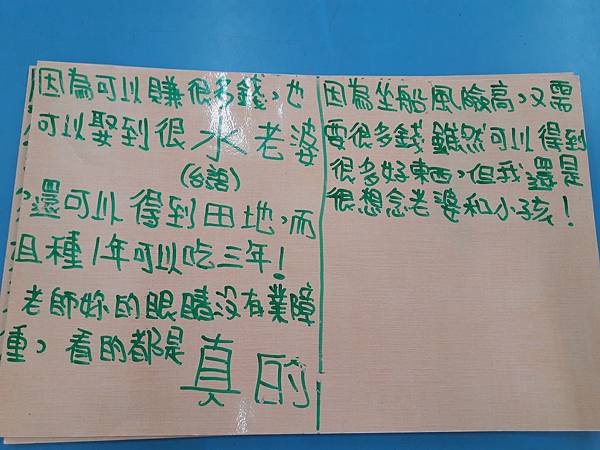 因為可以賺很多錢，也
可以娶到很水老婆
(台語)
還可以得到田地，而
且種1年可以吃三年！
老師妳的眼睛沒有業障
重，看的都是真的
因為坐船風險高，又需
要很多錢雖然可以得到
很多好東西，但我還是
很想念老婆和小孩！